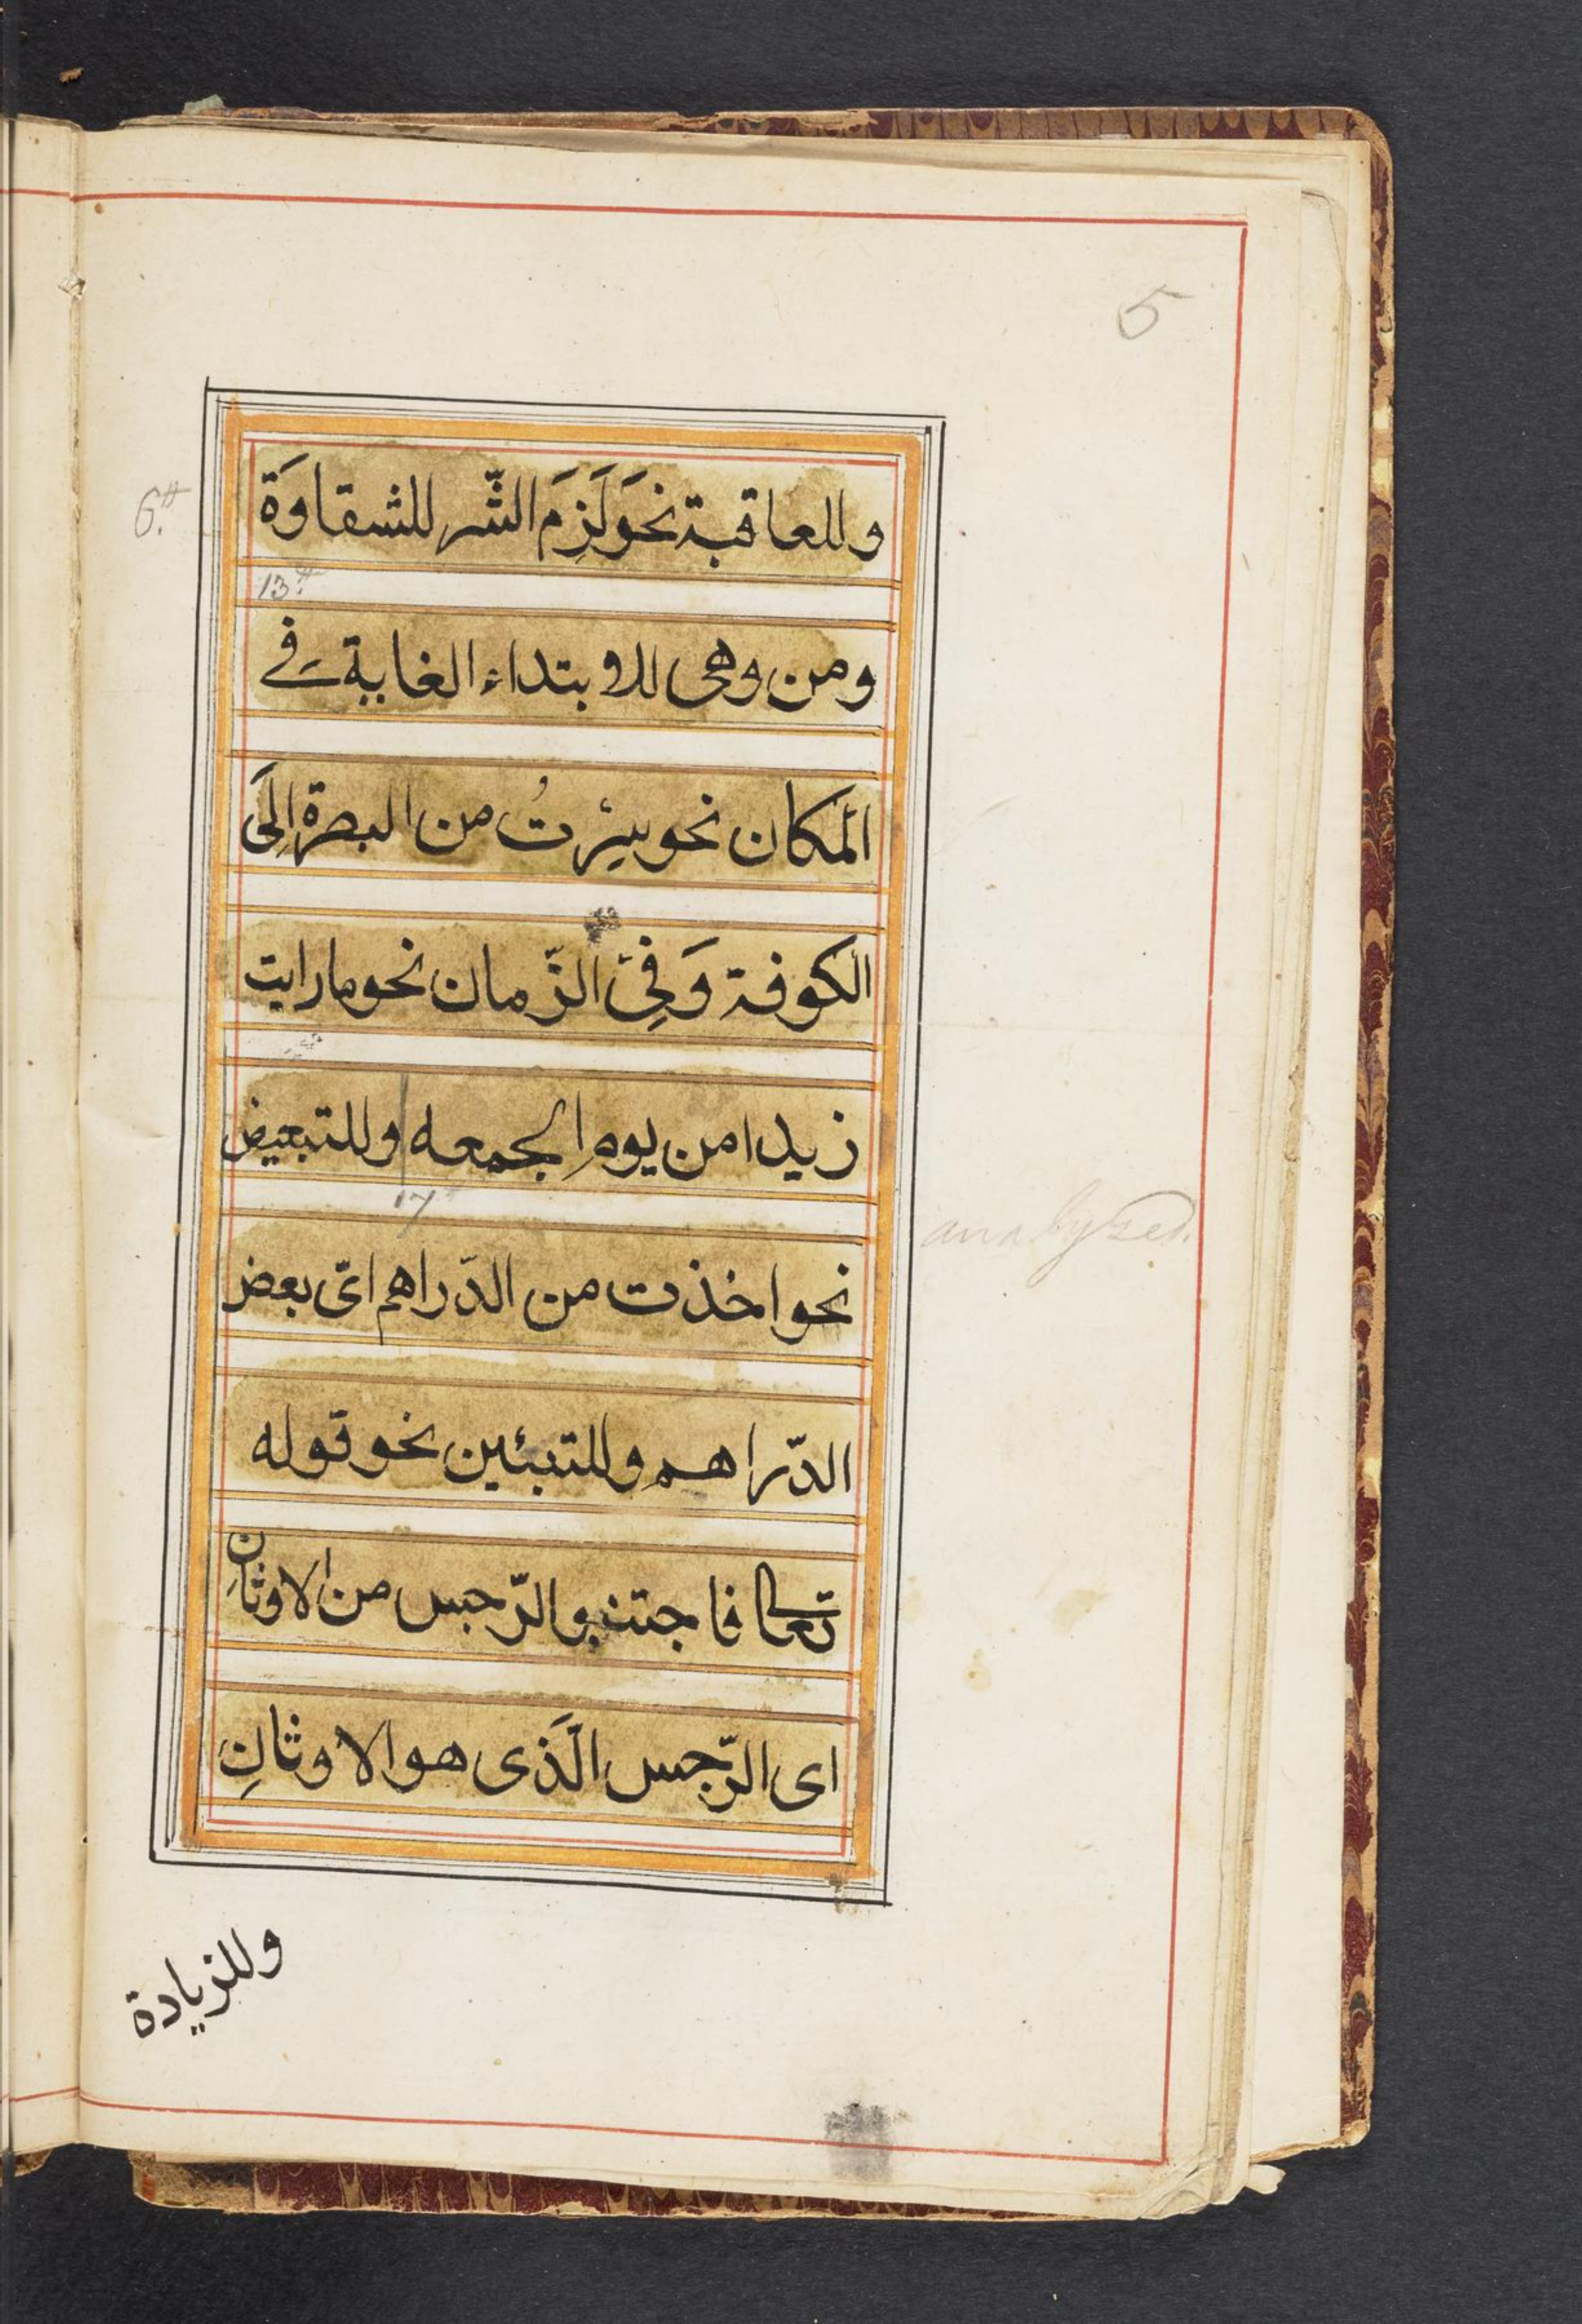 5
وللعاقبة نحو لَزِمَ الشّر للشقاوَة
6.
13.
ومن وهى للابتداء الغاية فے
المكان نحو سِرْتُ من البصرة اِلَى
الكوفة وَفِى الزّمان نحو ما رايت
زيدا من يومِ الجمعه وللتبعيض
17
analysed.
نحو اخذت من الدّراهم اى بعض
الدّراهم وللتبئين نحو قوله
تعالى فاجتنبو الرّجس من الاوثانِ
اى الرّجس الَّذى هو الاوثانِ
وللزيادة